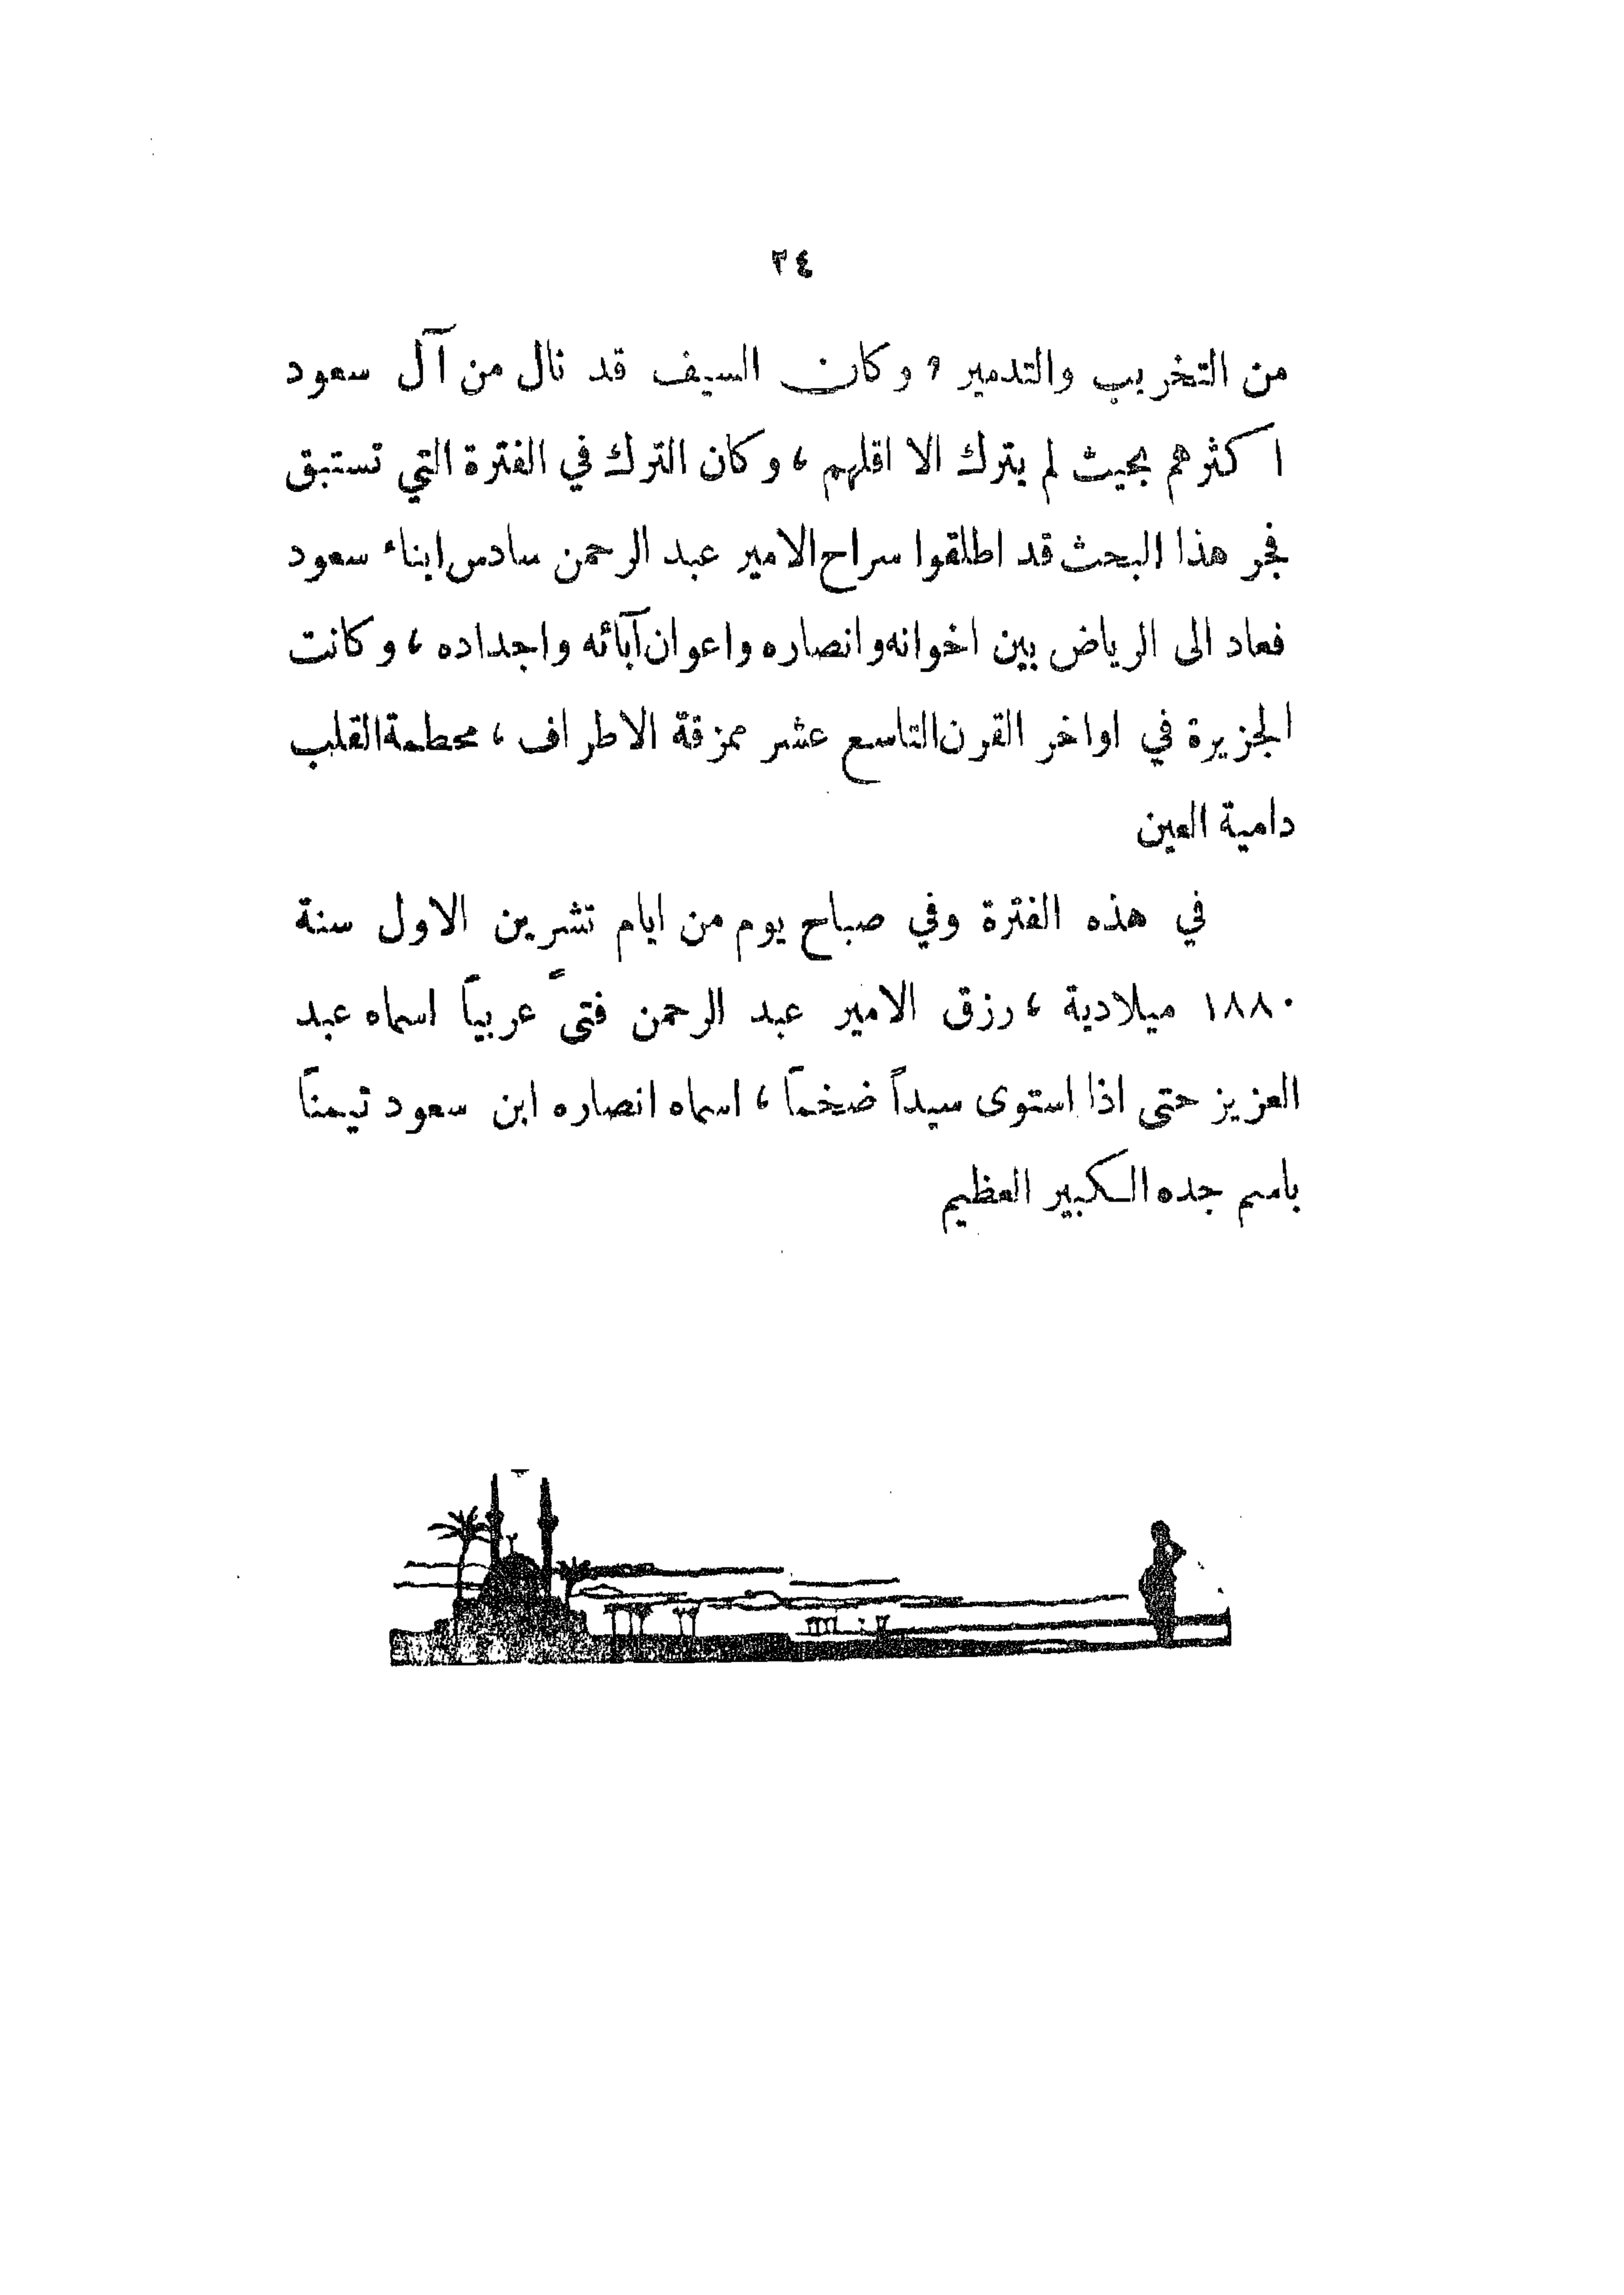 ٢٤
من التخريب والتدمير ، وكان السيف قد نال من آل سعود
اكثرهم بحيث لم يترك الا اقلهم ، وكان الترك في الفترة التي تستبق
فجر هذا البحث قد اطلقوا سراح الامير عبد الرحمن سادس ابناء سعود
فعاد الى الرياض بين اخوانه وانصاره واعوان آبائه واجداده ، وكانت
الجزيرة في اواخر القرن التاسع عشر ممزقة الاطراف ، محطمة القلب
دامية العين
في هذه الفترة وفي صباح يوم من ايام تشرين الاول سنة
١٨٨٠ ميلادية ، رزق الامير عبد الرحمن فتىً عربياً اسماه عبد
العزيز حتى اذا استوى سيداً ضخماً ، اسماه انصاره ابن سعود تيمناً
باسم جده الكبير العظيم